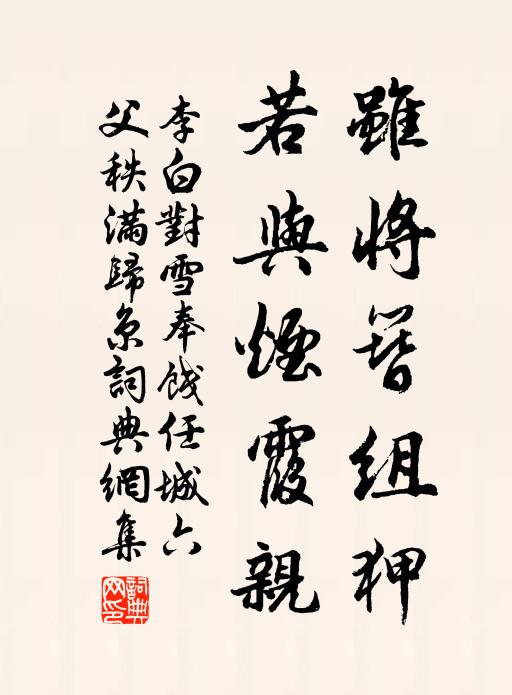 雖將簪組狎
若與煙霞親
李白對雪奉餞任城六
父秩滿歸京詞典網集
詞典网印